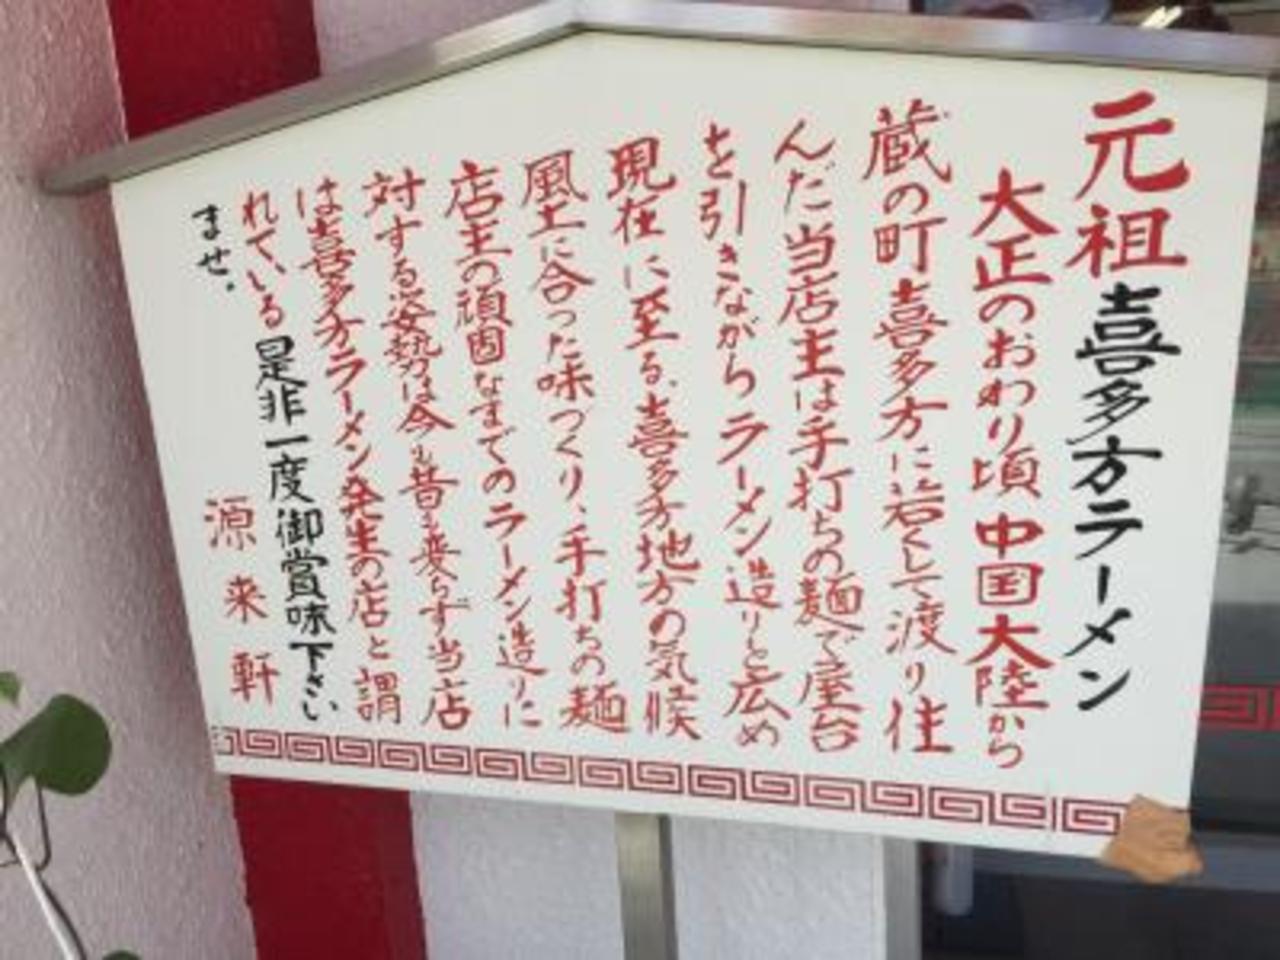 元祖喜多方ラーメン
大正のおわり頃中国大陸から
蔵の町喜多方に若くして渡り住
んだ当店主は手打ちの麺で屋台
を引きながらラーメン造りと広め
現在に至る、喜多方地方の気候
風土に合った味づくり、手打ちの麺
店主の頑固なまでのラーメン造りに
対する姿勢は今も昔も変らず当店
は喜多方ラーメン発生の店と謂
れている是非一度御賞味下さい
ませ。
源来軒